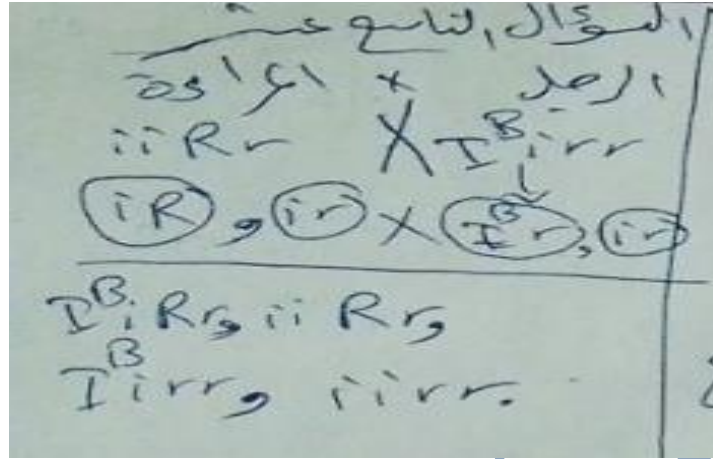 السؤال التاسع عشر
الرجل × امرأة
iiRr × Iᴮirr
iR, ir × Iᴮr, ir
IᴮiRr, iiRr,
Iᴮirr, iirr.